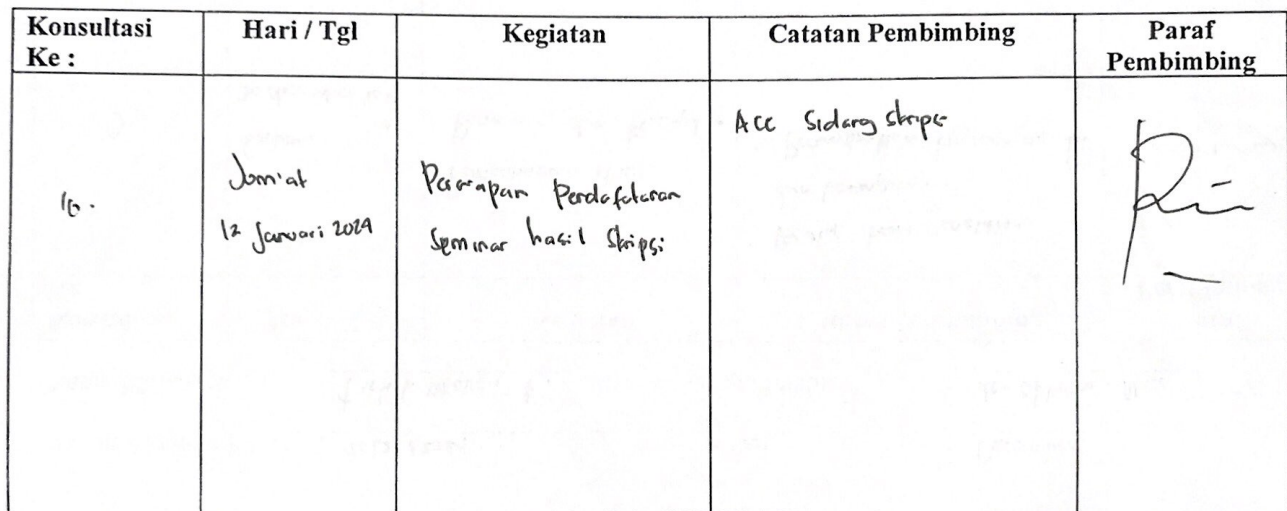 Konsultasi Ke :
Hari / Tgl
Kegiatan
Catatan Pembimbing
Paraf Pembimbing
10.
Jum'at
12 Januari 2024
Persiapan Pendaftaran
Seminar hasil Skripsi
Acc Sidang skripsi